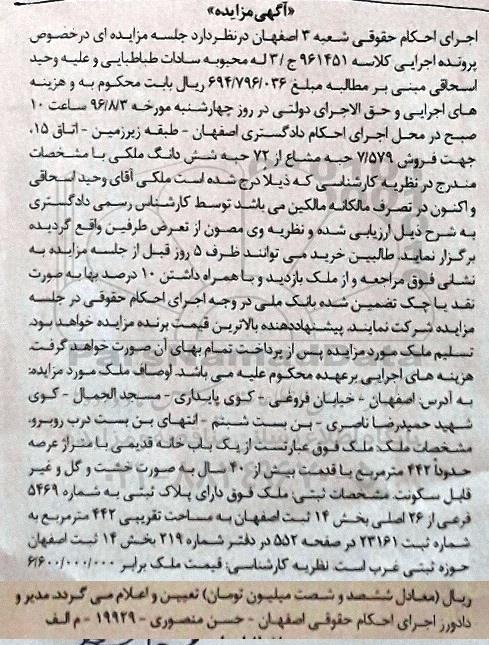 «آگهی مزایده»
اجرای احکام حقوقی شعبه ۳ اصفهان درنظردارد جلسه مزایده ای درخصوص
پرونده اجرایی کلاسه ۹۶۱۴۵۱ ج/۳ له محبوبه سادات طباطبایی و علیه وحید
اسحاقی مبنی بر مطالبه مبلغ ۶۹۴/۷۹۶/۰۳۶ ریال بابت محکوم به و هزینه
های اجرایی و حق الاجرای دولتی در روز چهارشنبه مورخه ۹۶/۸/۳ ساعت ۱۰
صبح در محل اجرای احکام دادگستری اصفهان - طبقه زیرزمین - اتاق ۱۵،
جهت فروش ۷/۵۷۹ حبه مشاع از ۷۲ حبه شش دانگ ملکی با مشخصات
مندرج در نظریه کارشناسی که ذیلا درج شده است ملکی آقای وحید اسحاقی
و اکنون در تصرف مالکانه مالکین می باشد توسط کارشناس رسمی دادگستری
به شرح ذیل ارزیابی شده و نظریه وی مصون از تعرض طرفین واقع گردیده
برگزار نماید. طالبین خرید می توانند ظرف ۵ روز قبل از جلسه مزایده به
نشانی فوق مراجعه و از ملک بازدید و با همراه داشتن ۱۰ درصد بها به صورت
نقد یا چک تضمین شده بانک ملی در وجه اجرای احکام حقوقی در جلسه
مزایده شرکت نمایند. پیشنهاددهنده بالاترین قیمت برنده مزایده خواهد بود.
تسلیم ملک مورد مزایده پس از پرداخت تمام بهای آن صورت خواهد گرفت.
هزینه های اجرایی برعهده محکوم علیه می باشد. اوصاف ملک مورد مزایده:
به آدرس: اصفهان - خیابان فروغی - کوی پایداری - مسجد الجمال - کوی
شهید حمیدرضا ناصری - بن بست شبنم - انتهای بن بست درب روبرو.
مشخصات ملک: ملک فوق عبارتست از یک باب خانه قدیمی با متراژ عرصه
حدوداً ۴۴۲ مترمربع با قدمت بیش از ۴۰ سال به صورت خشت و گل و غیر
قابل سکونت. مشخصات ثبتی: ملک فوق دارای پلاک ثبتی به شماره ۵۴۶۹
فرعی از ۲۶ اصلی بخش ۱۴ ثبت اصفهان به مساحت تقریبی ۴۴۲ مترمربع به
شماره ثبت ۲۳۱۶۱ در صفحه ۵۵۲ در دفتر شماره ۲۱۹ بخش ۱۴ ثبت اصفهان
حوزه ثبتی غرب است. نظریه کارشناسی: قیمت ملک برابر ۶/۶۰۰/۰۰۰/۰۰۰
ریال (معادل ششصد و شصت میلیون تومان) تعیین و اعلام می گردد. مدیر و
دادورز اجرای احکام حقوقی اصفهان - حسن منصوری - ۱۹۹۲۹ - م الف